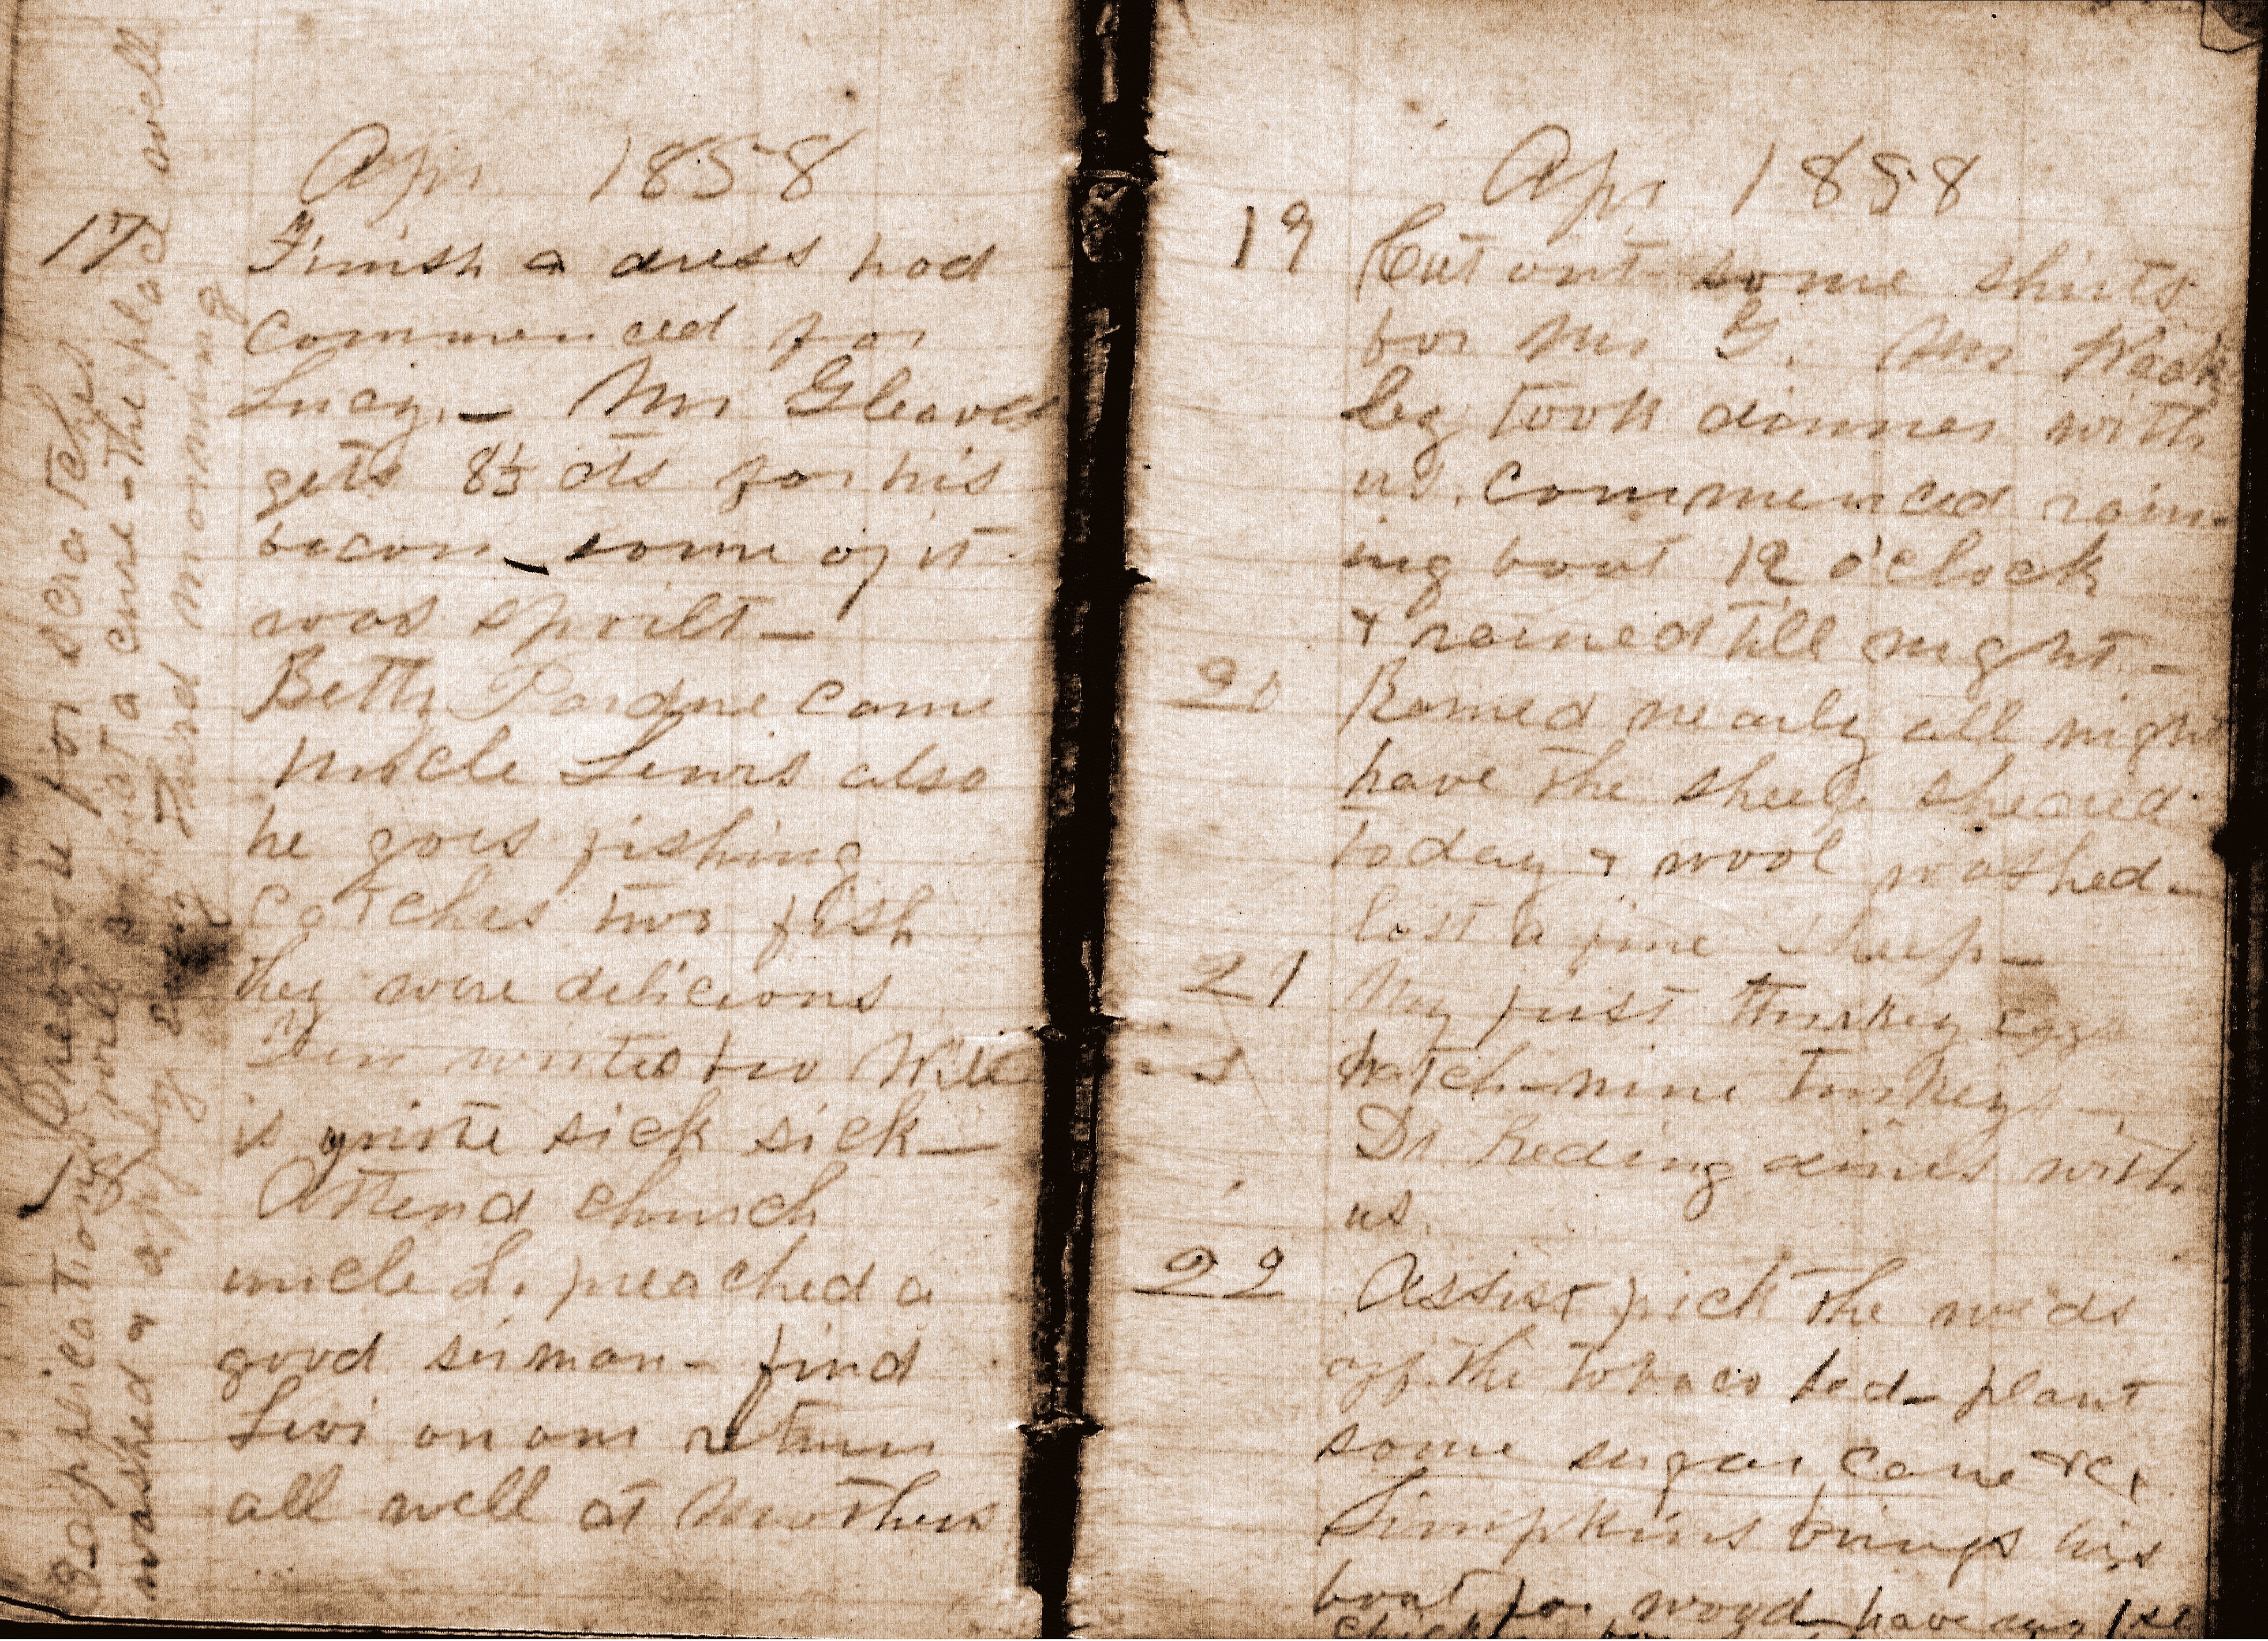 Apr 1858
17 Finish a dress had
commenced for
Lucy. — Mr Gleaves
gets 8⅓ cts for his
bacon — some of it
was spoilt —
Betty Pardue came
Uncle Lewis also
he goes fishing
catches two fish
they were delicious
is quite sick sick —
18 Attend church
uncle L. preached a
good sermon - find
Levi on our return
all well at Mothers
for scratches
2 applications will a cure - the place well
washed & apply
third morning
Apr 1858
19 Cut out some shirts
for Mr G. Mr Weak
ley took dinner with
us. commenced rain-
ing bout 12 o'clock
& rained till night —
20 Rained nearly all night
have the sheep sheared
today & wool washed -
lost a fine sheep —
21 My first turkey eggs
hatch - nine turkeys —
Dr. Reding dines with
us.
22 Assist pick the weeds
off the tobacco bed - plant
some sugar cane &c,
Simpkins brings his
boat for wood - have my 1st